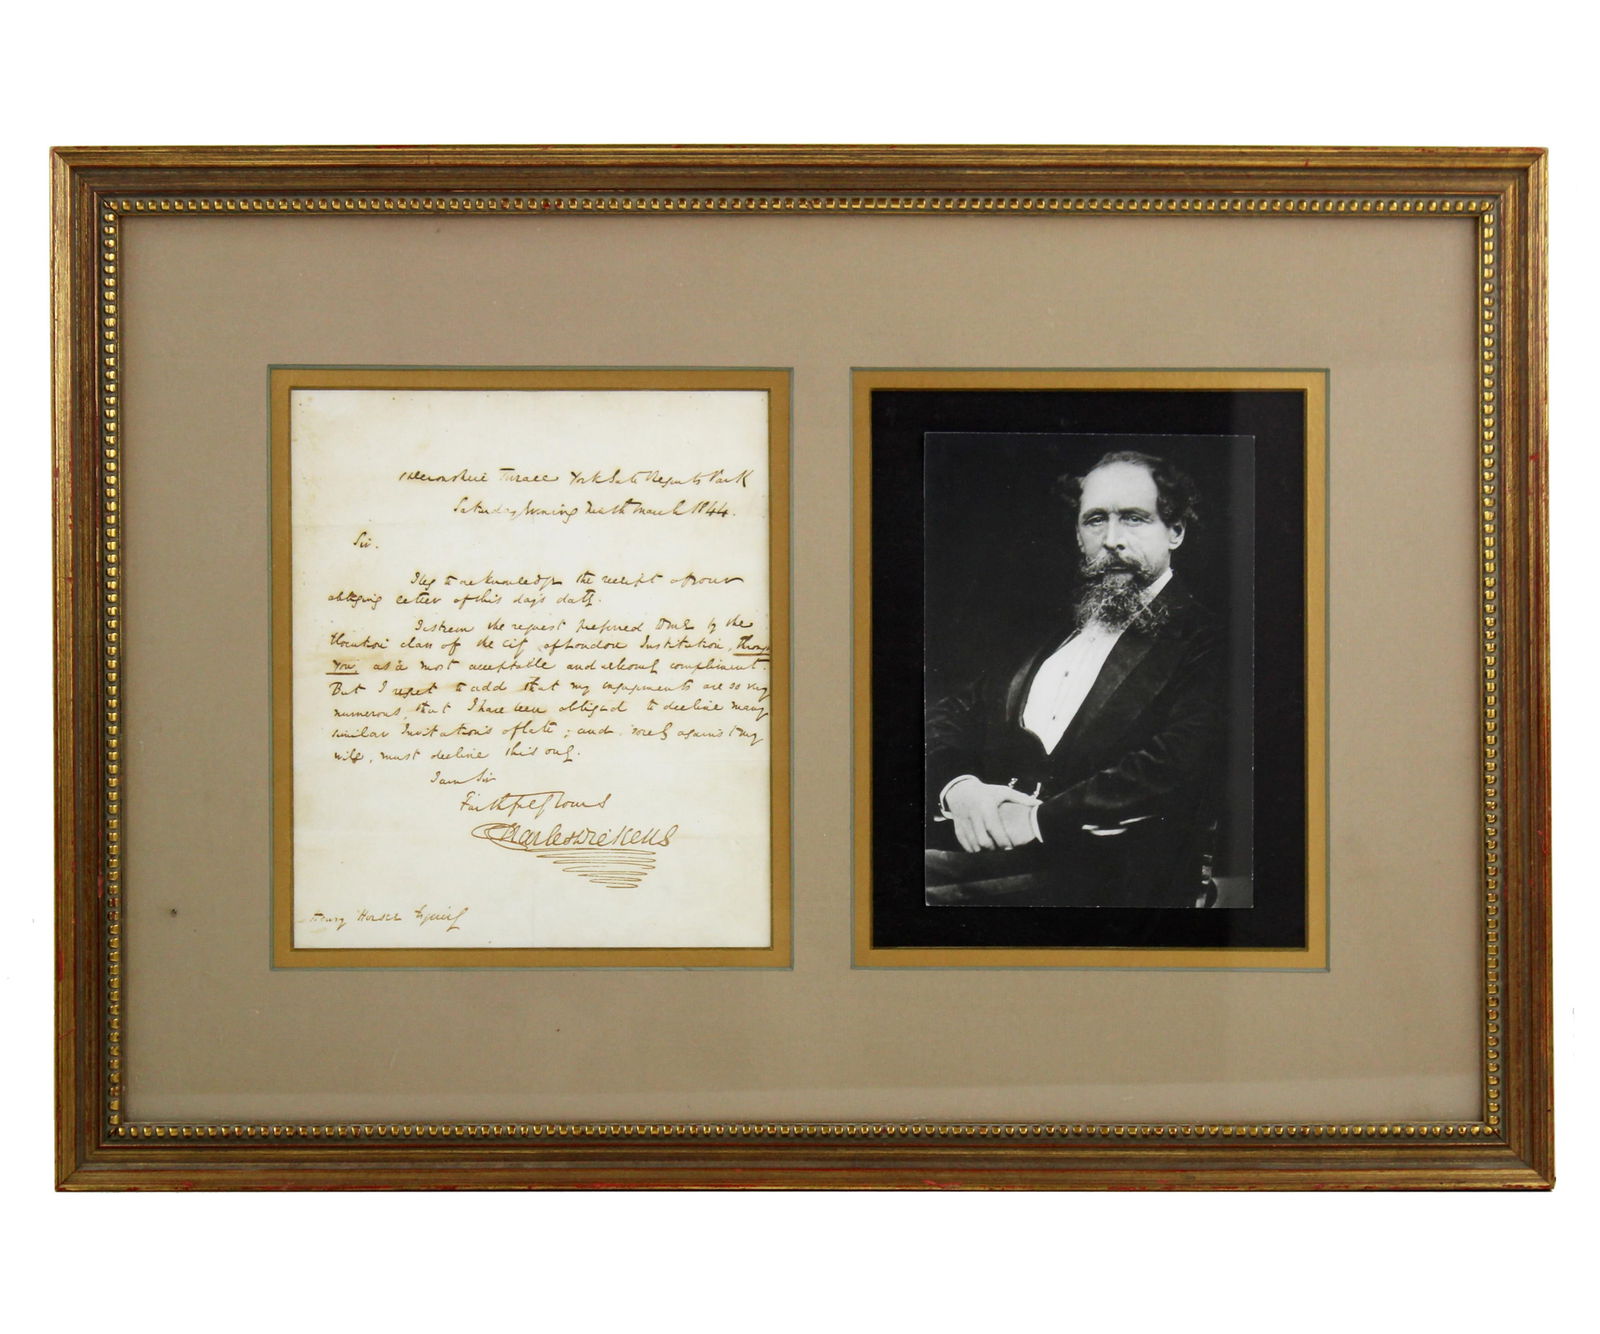 Devonshire Terrace York Gate Regents Park
Saturday Evening Ninth March 1844.
Sir.
I beg to acknowledge the receipt of your
obliging letter of this day's date.
I esteem the request preferred to me by the
Elocution class of the City of London Institution, through
you, as a most acceptable and welcome compliment.
But I regret to add that my engagements are so very
numerous, that I have been obliged to decline many
similar Invitations of late; and, sorely against my
will, must decline this one.
I am Sir
Faithfully Yours
Charles Dickens
Henry Esquire